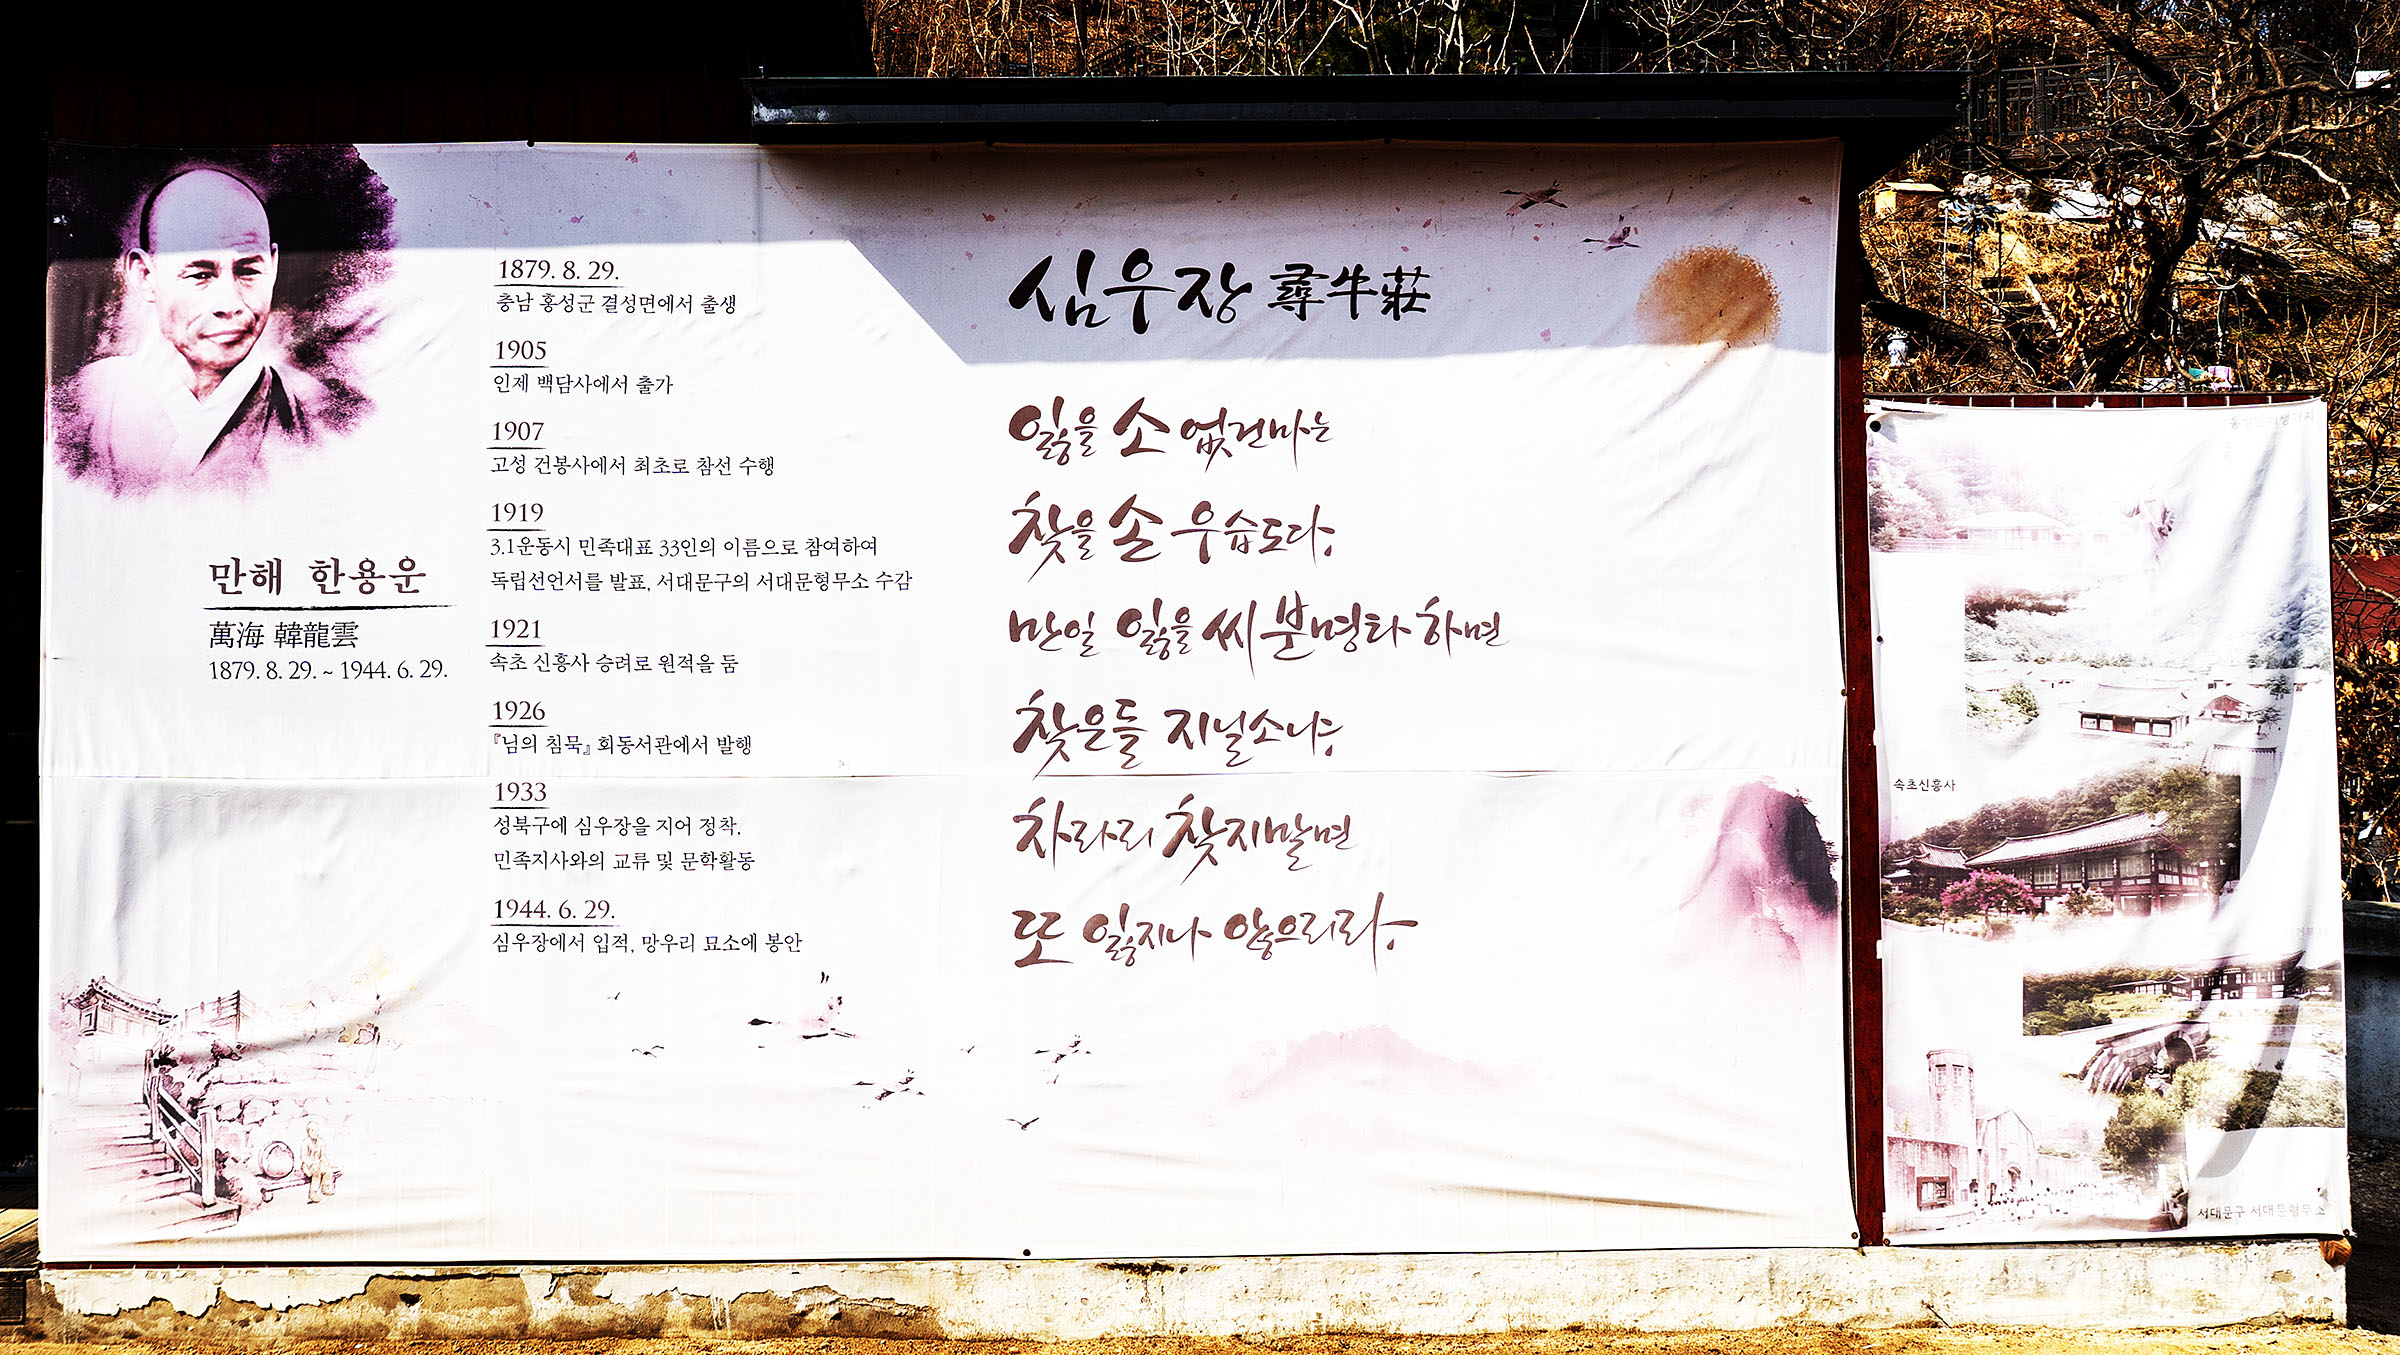 만해 한용운
萬海 韓龍雲
1879. 8. 29. ~ 1944. 6. 29.
1879. 8. 29.
충남 홍성군 결성면에서 출생
1905
인제 백담사에서 출가
1907
고성 건봉사에서 최초로 참선 수행
1919
3.1운동시 민족대표 33인의 이름으로 참여하여
독립선언서를 발표, 서대문구의 서대문형무소 수감
1921
속초 신흥사 승려로 원적을 둠
1926
『님의 침묵』 회동서관에서 발행
1933
성북구에 심우장을 지어 정착,
민족지사와의 교류 및 문학활동
1944. 6. 29.
심우장에서 입적, 망우리 묘소에 봉안
심우장 尋牛莊
잃을 소 없건마는
찾을 손 우습도다.
만일 잃을 씨 분명타 하면
찾은들 지닐소냐.
차라리 찾지말면
또 잃지나 않으리라.
속초신흥사
서대문구 서대문형무소